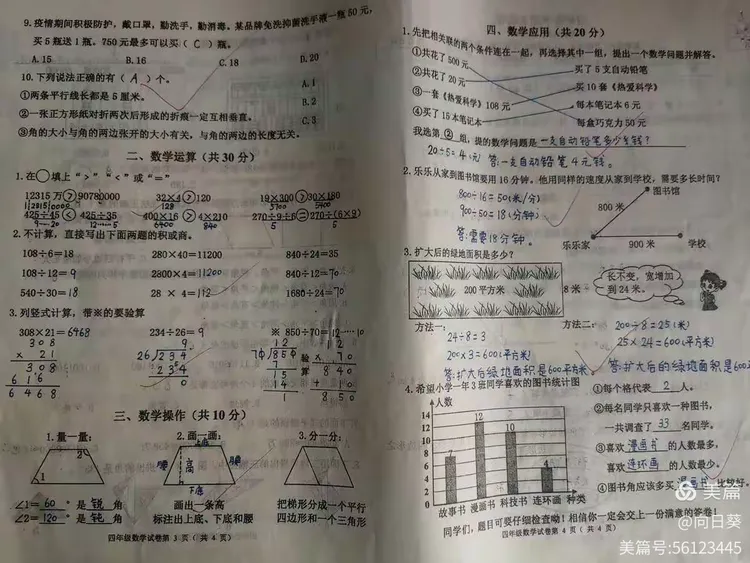 9.疫情期间积极防护，戴口罩，勤洗手，勤消毒。某品牌免洗抑菌洗手液一瓶50元，
买5瓶送1瓶。750元最多可以买（C）瓶。
A.15 B.16 C.18 D.20
10.下列说法正确的有（A）个。 A.1
①两条平行线长都是5厘米。 B.2
②一张正方形纸对折两次后形成的折痕一定互相垂直。 C.3
③角的大小与角的两边张开的大小有关，与角的两边的长度无关。
二、数学运算（共30分）
1.在○填上“>”“<”或“=”
12315万>90780000 32×4>120 19×300>30×180
128 5700 5400
425÷45<425÷35 400×16>4×210 270÷9÷6=270÷(6×9)
9……20 12……5 6400 840 5 5
2.不计算，直接写出下面两题的积或商。
108÷6=18 280×40=11200 840÷24=35
108÷12=9 2800×4=11200 840÷12=70
540÷30=18 28×4=112 1680÷24=70
3.列竖式计算，带※的要验算
308×21=6468 234÷26=9 ※850÷70=12……10
308 9 12 12
×21 26/234 70/850 验 ×70
308 234 7 算 840
616 0 15 +10
6468 14 850
1
三、数学操作（共10分）
1.量一量： 2.画一画： 3.分一分：
2 上底
腰 高 腰
1 下底
∠1=60°是锐角 画出一条高 把梯形分成一个平行
∠2=120°是钝角 标注出上底、下底和腰 四边形和一个三角形
四年级数学试卷第3页（共4页）
四、数学应用（共20分）
1.先把相关联的两个条件连在一起，再选择其中一组，提出一个数学问题并解答。
①共花了500元 买了5支自动铅笔
②共花了20元 买10套《热爱科学》
③一套《热爱科学》108元 每本笔记本6元
④买了15本笔记本 每盒巧克力50元
我选第②组，提的数学问题是一支自动铅笔多少钱？
20÷5=4(元) 答:一支自动铅笔4元钱。
2.乐乐从家到图书馆要用16分钟。他用同样的速度从家到学校，需要多长时间？
800÷16=50(米/分) 图书馆
900÷50=18(分钟) 800米
答:需要18分钟。 乐乐家 900米 学校
3.扩大后的绿地面积是多少？
200平方米 8米 长不变，宽增加
到24米。
方法一： 方法二：200÷8=25(米)
24÷8=3 25×24=600(平方米)
200×3=600(平方米)
答:扩大后的绿地面积是600平方米 答:扩大后的绿地面积是600
4.希望小学一年3班同学喜欢的图书统计图
人数 ①每个格代表2人。
14
12 12 ②每名同学只喜欢一种图书，
10 11 一共调查了33名同学。
8 7 ③喜欢漫画书的人数最多，
6 4 喜欢连环画的人数最少。
4 ④图书角应该多买漫画书比较好。
2
0
故事书 漫画书 科技书 连环画 种类
同学们，题目可要仔细检查呦！相信你一定会交上一份满意的答卷！
四年级数学试卷第4页（共4页）
美篇
@向日葵
美篇号:56123445